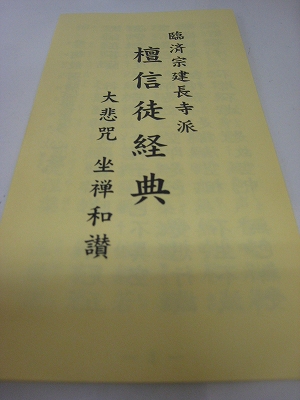 臨済宗建長寺派
檀信徒経典
大悲咒 坐禅和讃